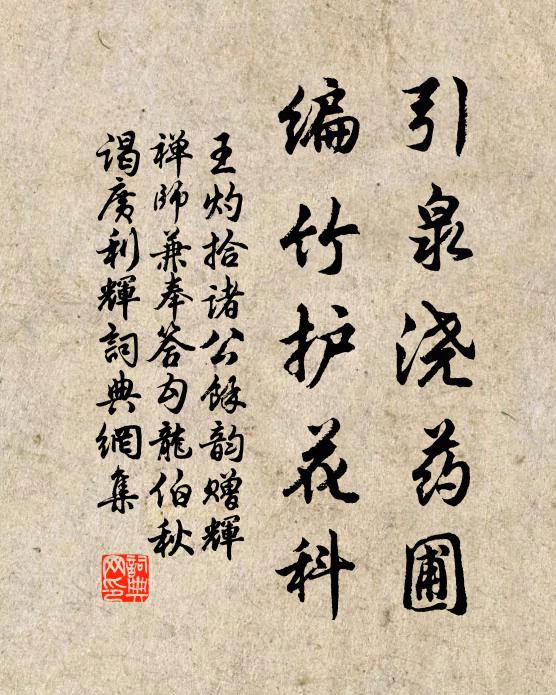 引泉浇药圃
编竹护花科
王灼拾诸公馀韵赠輝
禅師兼奉答勾龍伯秋
谒廣利輝詞典網集
詞典
网印